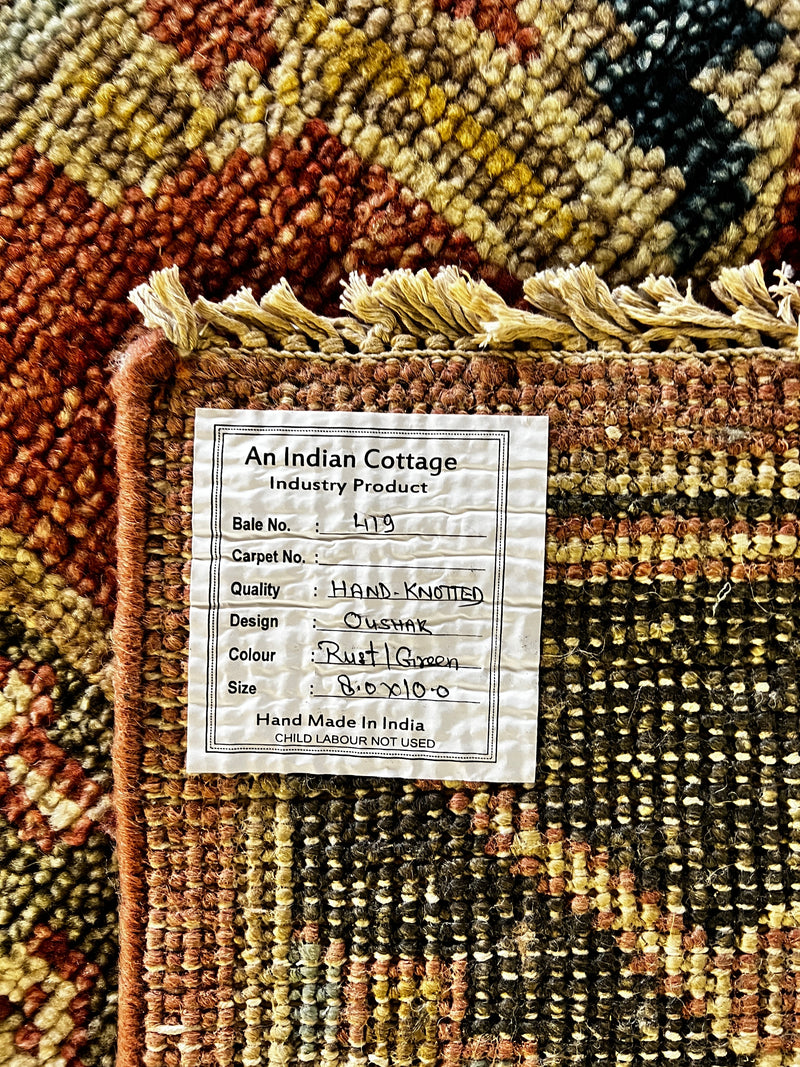 An Indian Cottage
Industry Product
Bale No. : 419
Carpet No. :
Quality : HAND-KNOTTED
Design : OUSHAK
Colour : Rust/Green
Size : 8.0x10.0
Hand Made In India
CHILD LABOUR NOT USED